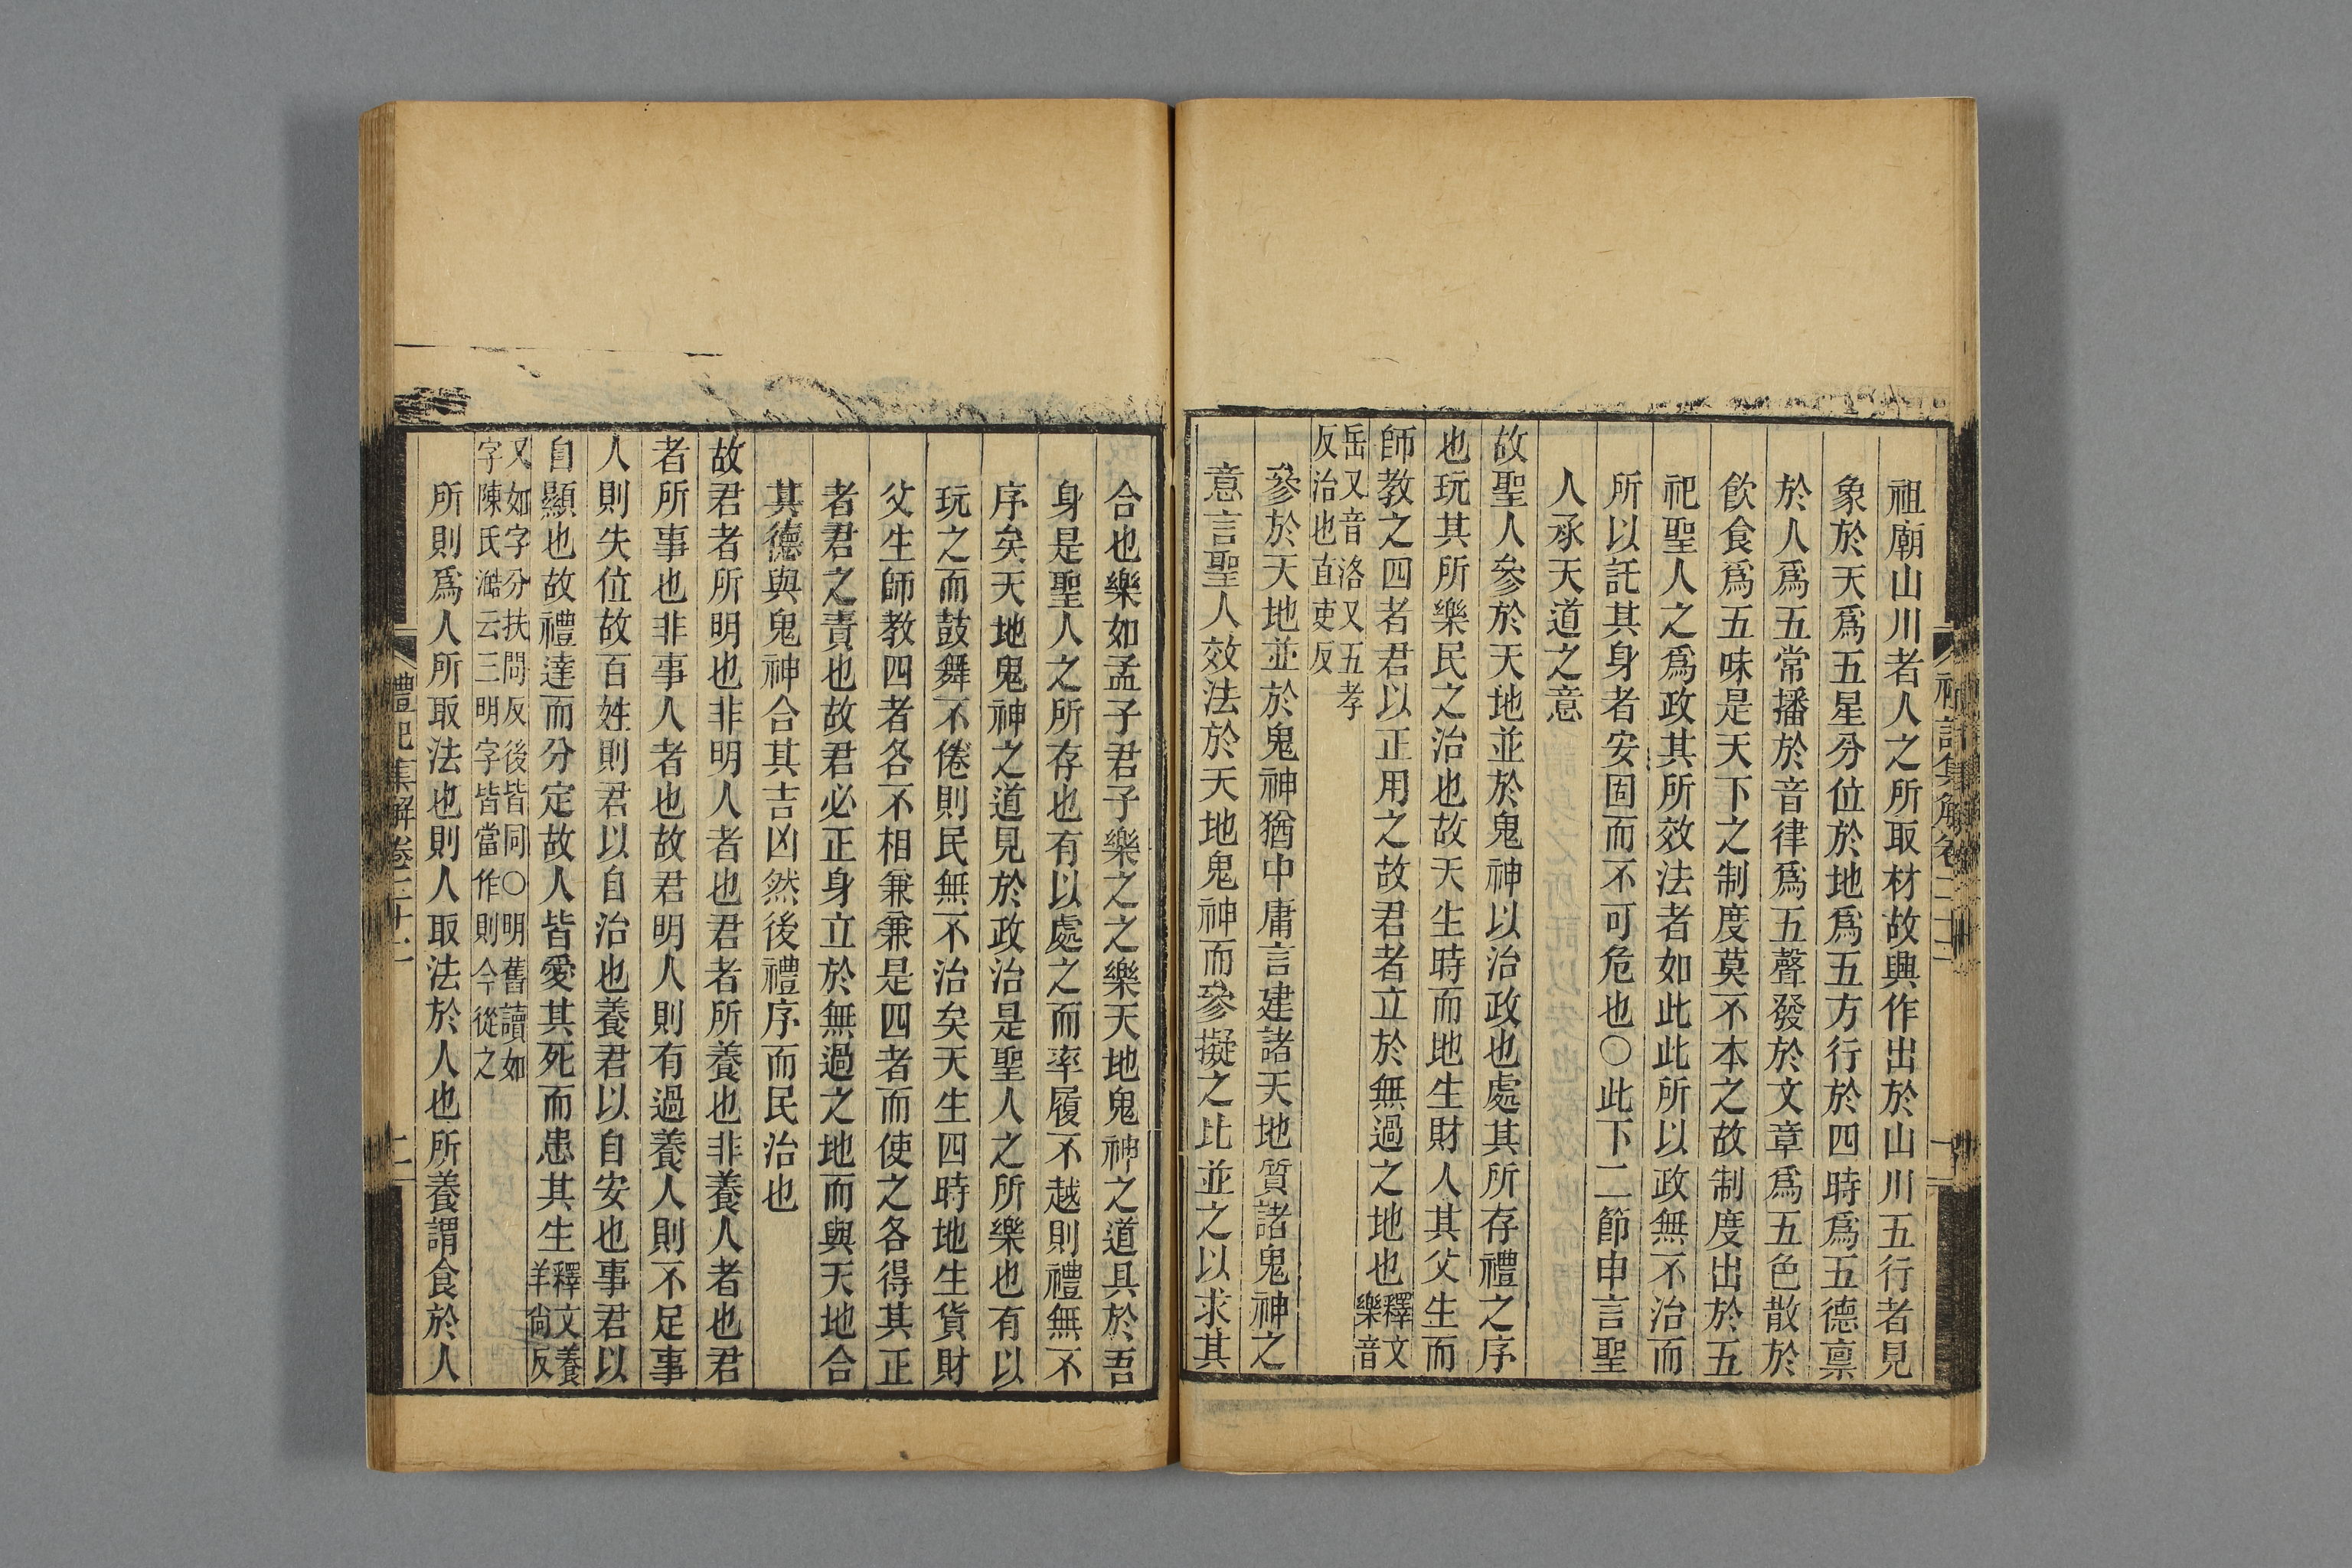 祖廟山川者人之所取材故興作出於山川五行者見
象於天爲五星分位於地爲五方行於四時爲五德稟
於人爲五常播於音律爲五聲發於文章爲五色散於
飮食爲五味是天下之制度莫不本之故制度出於五
祀聖人之爲政其所效法者如此此所以政無不治而
所以託其身者安固而不可危也○此下二節申言聖
人承天道之意
故聖人參於天地並於鬼神以治政也處其所存禮之序
也玩其所樂民之治也故天生時而地生財人其父生而
師教之四者君以正用之故君者立於無過之地也釋文
樂音
岳又音洛又五孝
反治也直吏反
參於天地並於鬼神猶中庸言建諸天地質諸鬼神之
意言聖人效法於天地鬼神而參擬之比並之以求其
合也樂如孟子君子樂之之樂天地鬼神之道具於吾
身是聖人之所存也有以處之而率履不越則禮無不
序矣天地鬼神之道見於政治是聖人之所樂也有以
玩之而鼓舞不倦則民無不治矣天生四時地生貨財
父生師教四者各不相兼兼是四者而使之各得其正
者君之責也故君必正身立於無過之地而與天地合
其德與鬼神合其吉凶然後禮序而民治也
故君者所明也非明人者也君者所養也非養人者也君
者所事也非事人者也故君明人則有過養人則不足事
人則失位故百姓則君以自治也養君以自安也事君以
自顯也故禮達而分定故人皆愛其死而患其生釋文養
羊尙反
又如字分扶問反後皆同○明舊讀如
字陳氏澔云三明字皆當作則今從之
所則爲人所取法也則人取法於人也所養謂食於人
禮記集解卷二十二
二